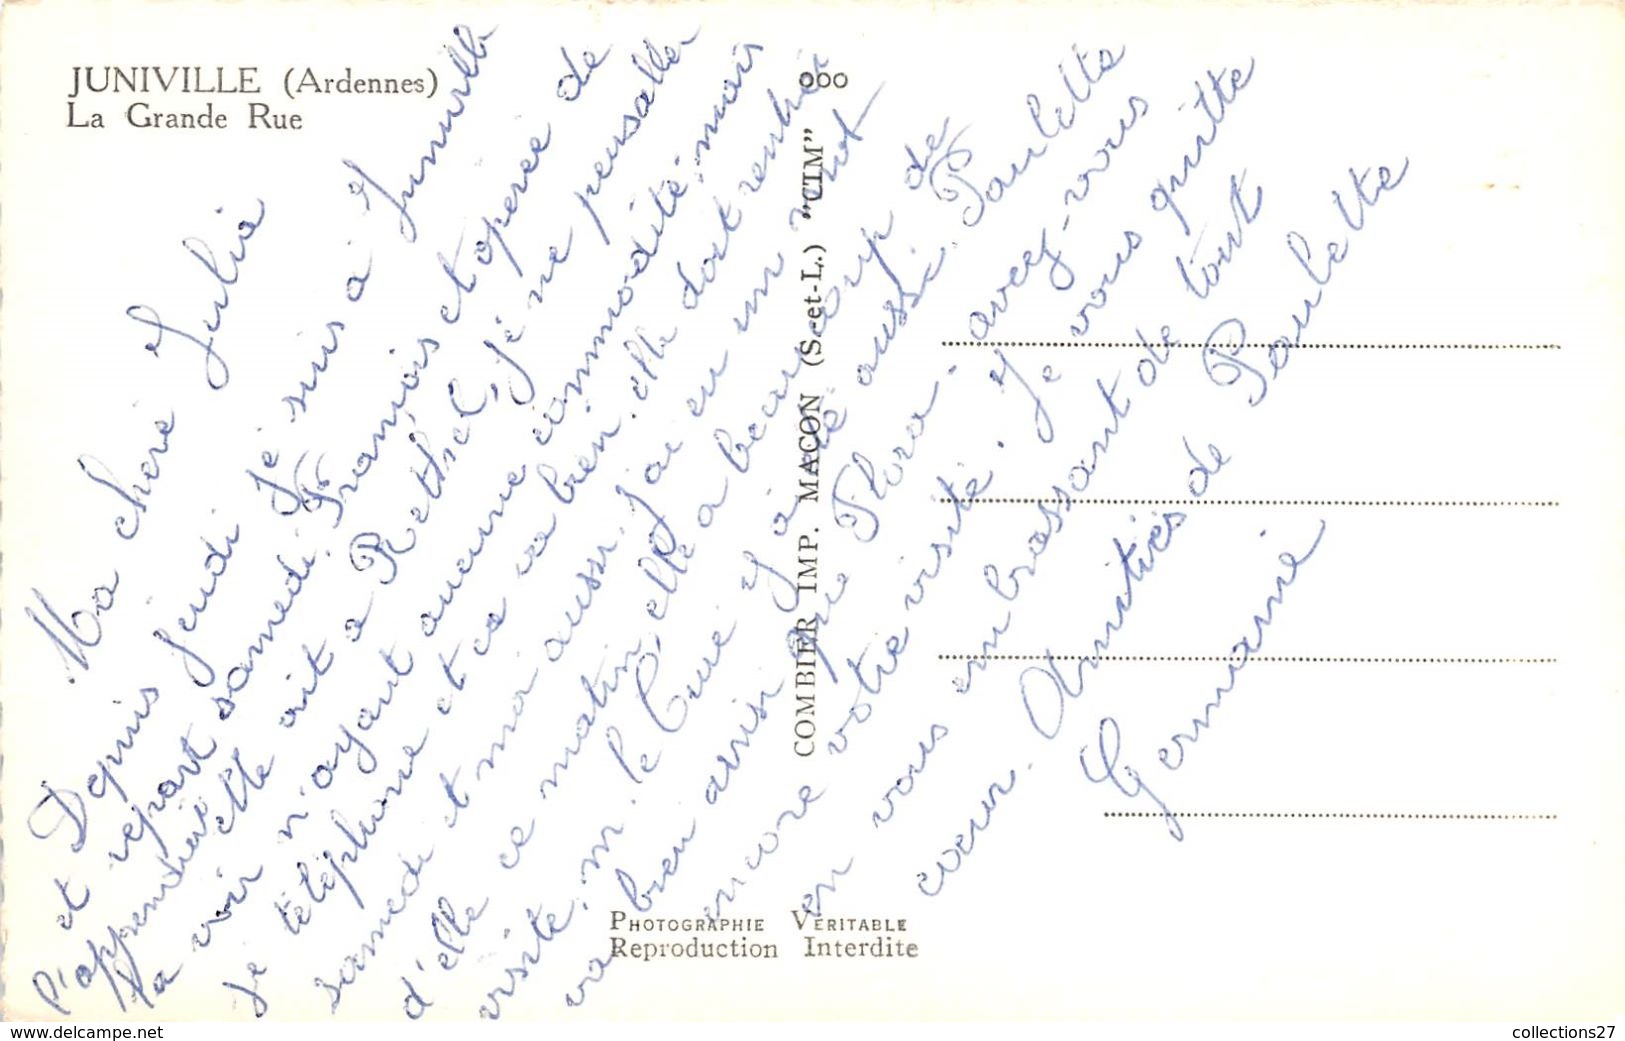 JUNIVILLE (Ardennes)
La Grande Rue
Ma chère Julia
Depuis jeudi je suis à Juniville
et repart samedi. François est opérée de
l'appendicite à Rethel, je ne pensaller
la voir n'ayant aucune commodité. mais
je téléphone et ca va bien. elle doit rentrer
samedi et moi aussi. j'ai eu un mot
d'elle ce matin, elle a beaucoup de
visite. M. le Curé y a été aussi. Paulette
va bien ainsi que Flora. avez-vous
encore votre visite. Je vous quitte
en vous embrassant de tout
cœur. Amitiés de Paulette
Germaine
ooo
COMBIER IMP. MACON (S.-et-L.) "CIM"
PHOTOGRAPHIE VÉRITABLE
Reproduction Interdite
www.delcampe.net
collections27